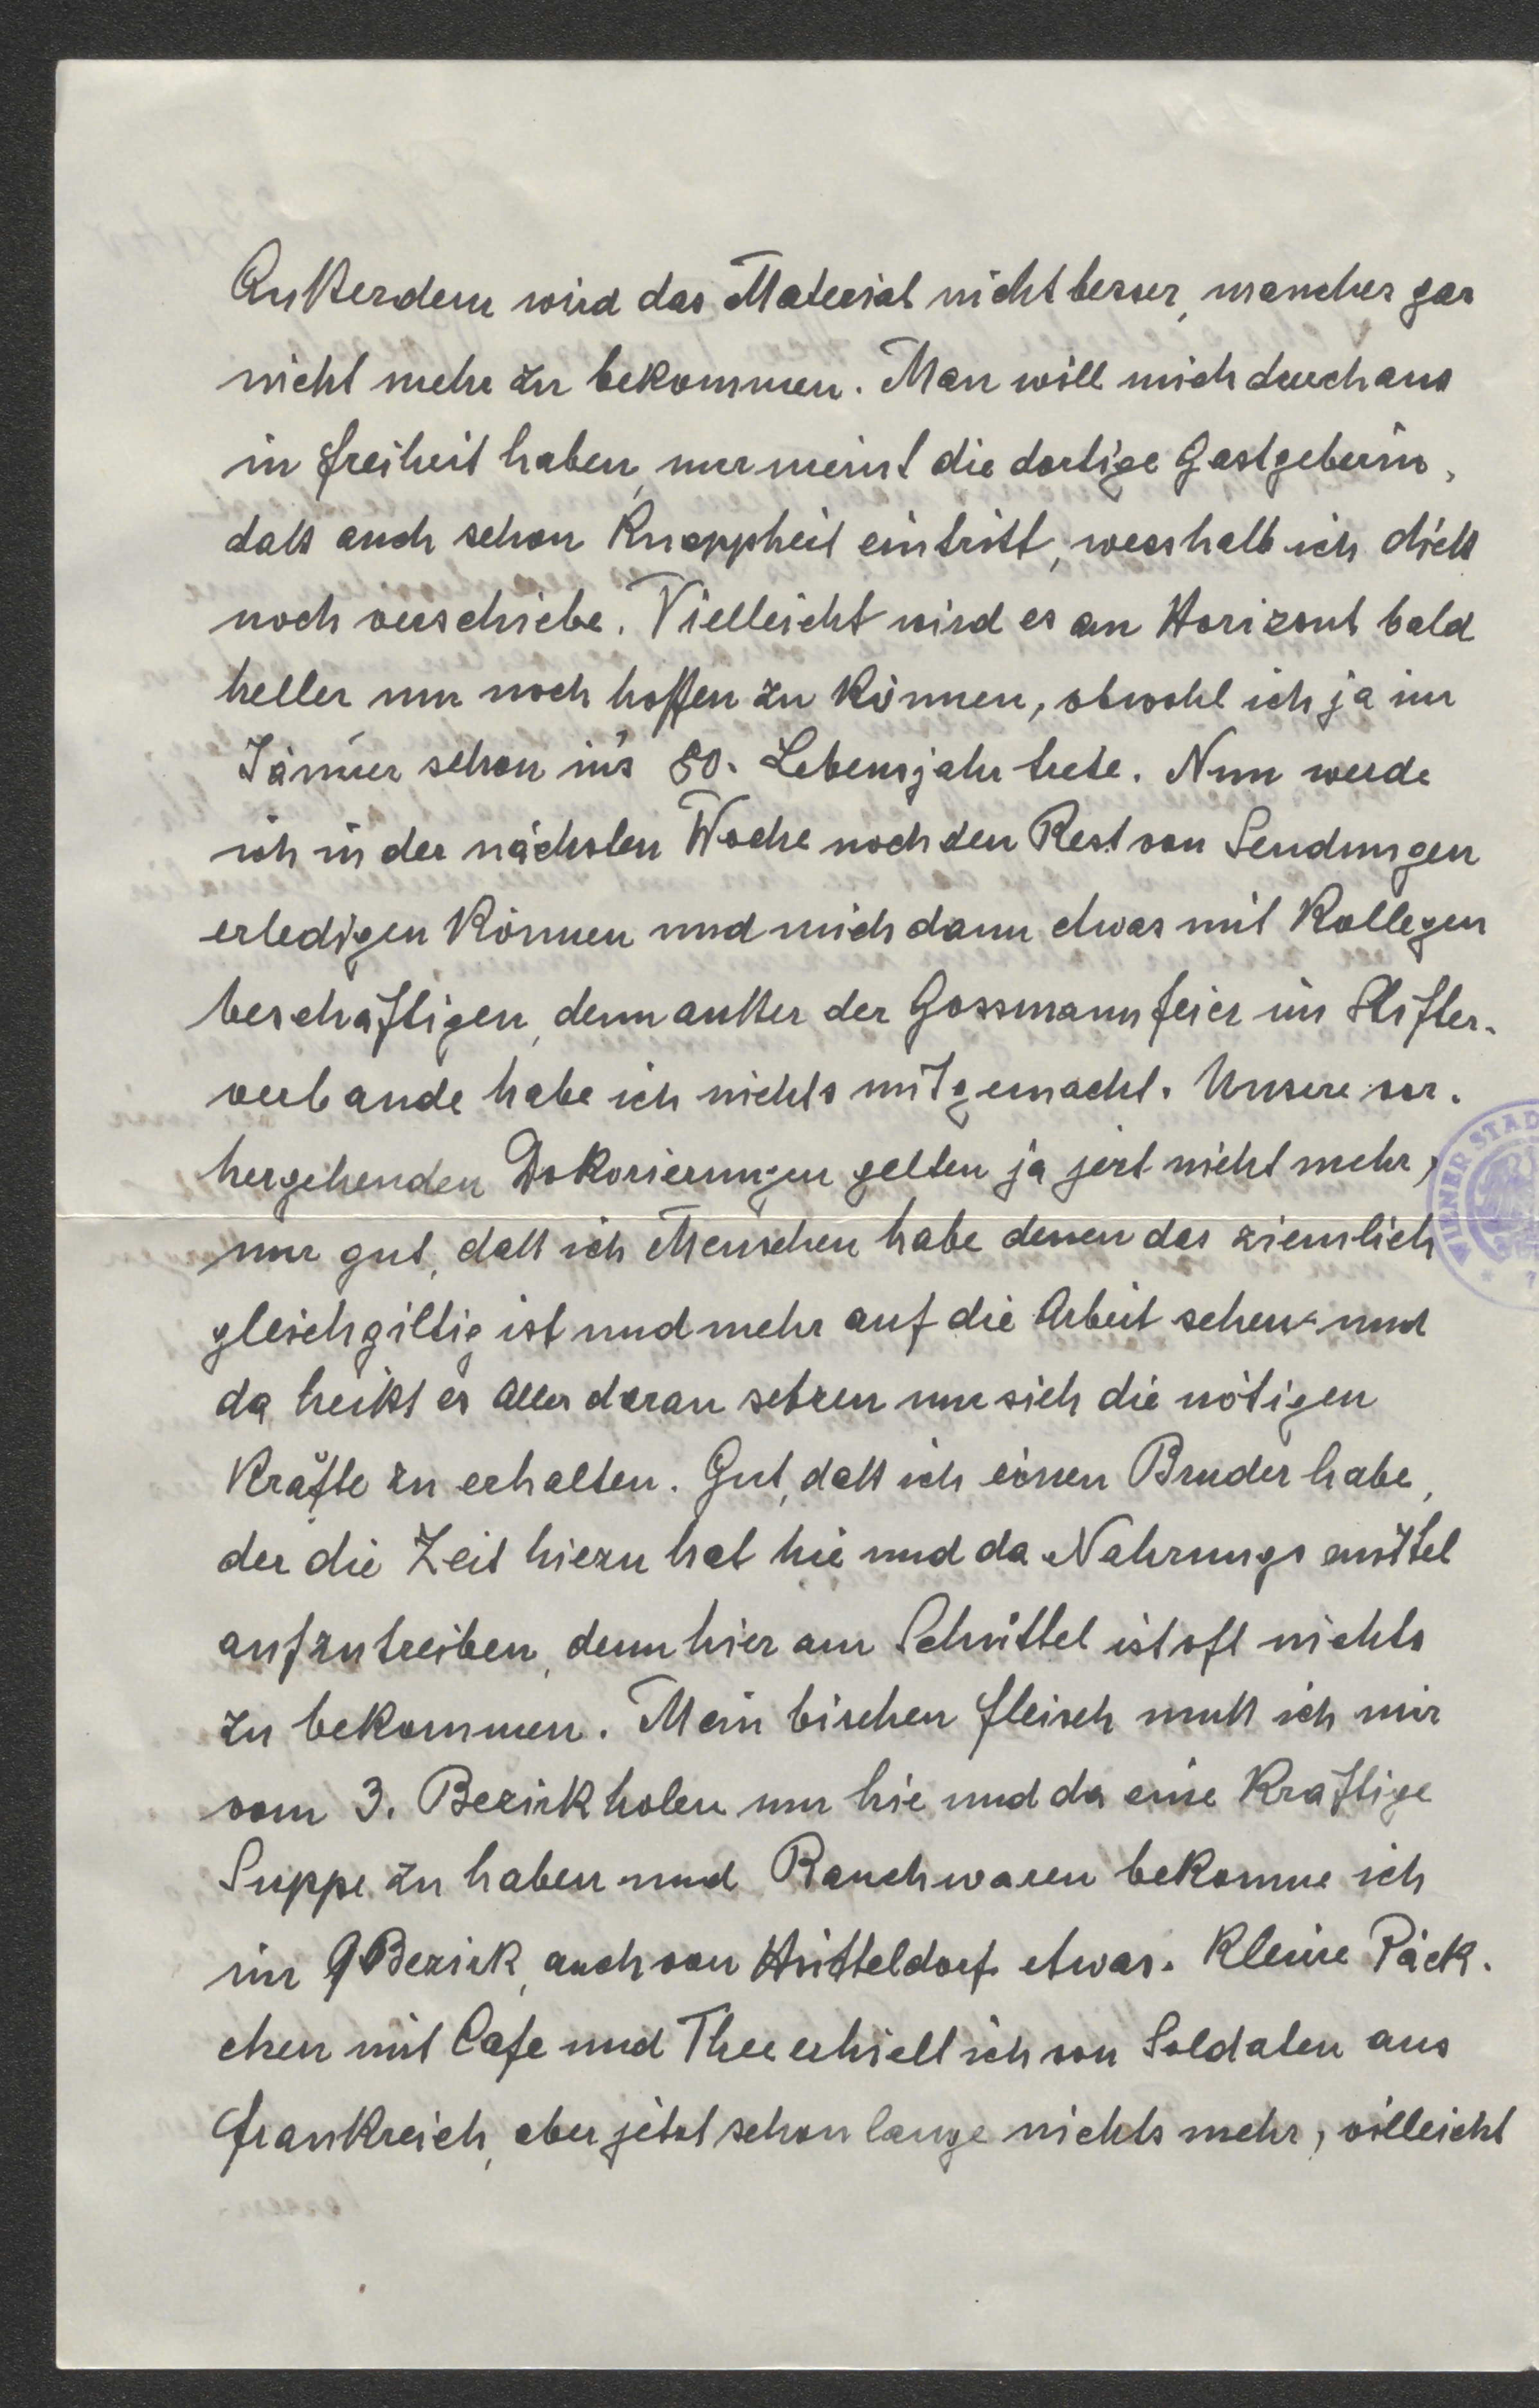 Außerdem wird das Material nicht besser, manches gar
nicht mehr zu bekommen. Man will mich durchaus
in Freiheit haben, nur meint die dortige Gastgeberin,
daß auch schon Knappheit eintritt, wesshalb ich dieß
noch verschiebe. Vielleicht wird es am Horizont bald
heller um noch hoffen zu können, obwohl ich ja im
Jänner schon in's 80. Lebensjahr trete. Nun werde
ich in der nächsten Woche noch den Rest von Sendungen
erledigen können und mich dann etwas mit Kollegen
beschäftigen, denn außer der Gossmannfeier im Stifter-
verbande habe ich nichts mitgemacht. Unsere vor-
hergehenden Dekorierungen gelten ja jezt nicht mehr,
nur gut, daß ich Menschen habe denen das ziemlich
gleichgiltig ist und mehr auf die Arbeit sehen und
da heißt es Alles daran setzen um sich die nötigen
Kräfte zu erhalten. Gut, daß ich einen Bruder habe,
der die Zeit hiezu hat hie und da Nahrungsmittel
aufzutreiben, denn hier am Schüttel ist oft nichts
zu bekommen. Mein bischen Fleisch muß ich mir
vom 3. Bezirk holen um hie und da eine kräftige
Suppe zu haben und Rauchwaren bekomme ich
im 9 Bezirk, auch von Hütteldorf etwas. Kleine Päck-
chen mit Cafe und Thee erhielt ich von Soldaten aus
Frankreich, aber jetzt schon lange nichts mehr, villeicht
WIENER STAD